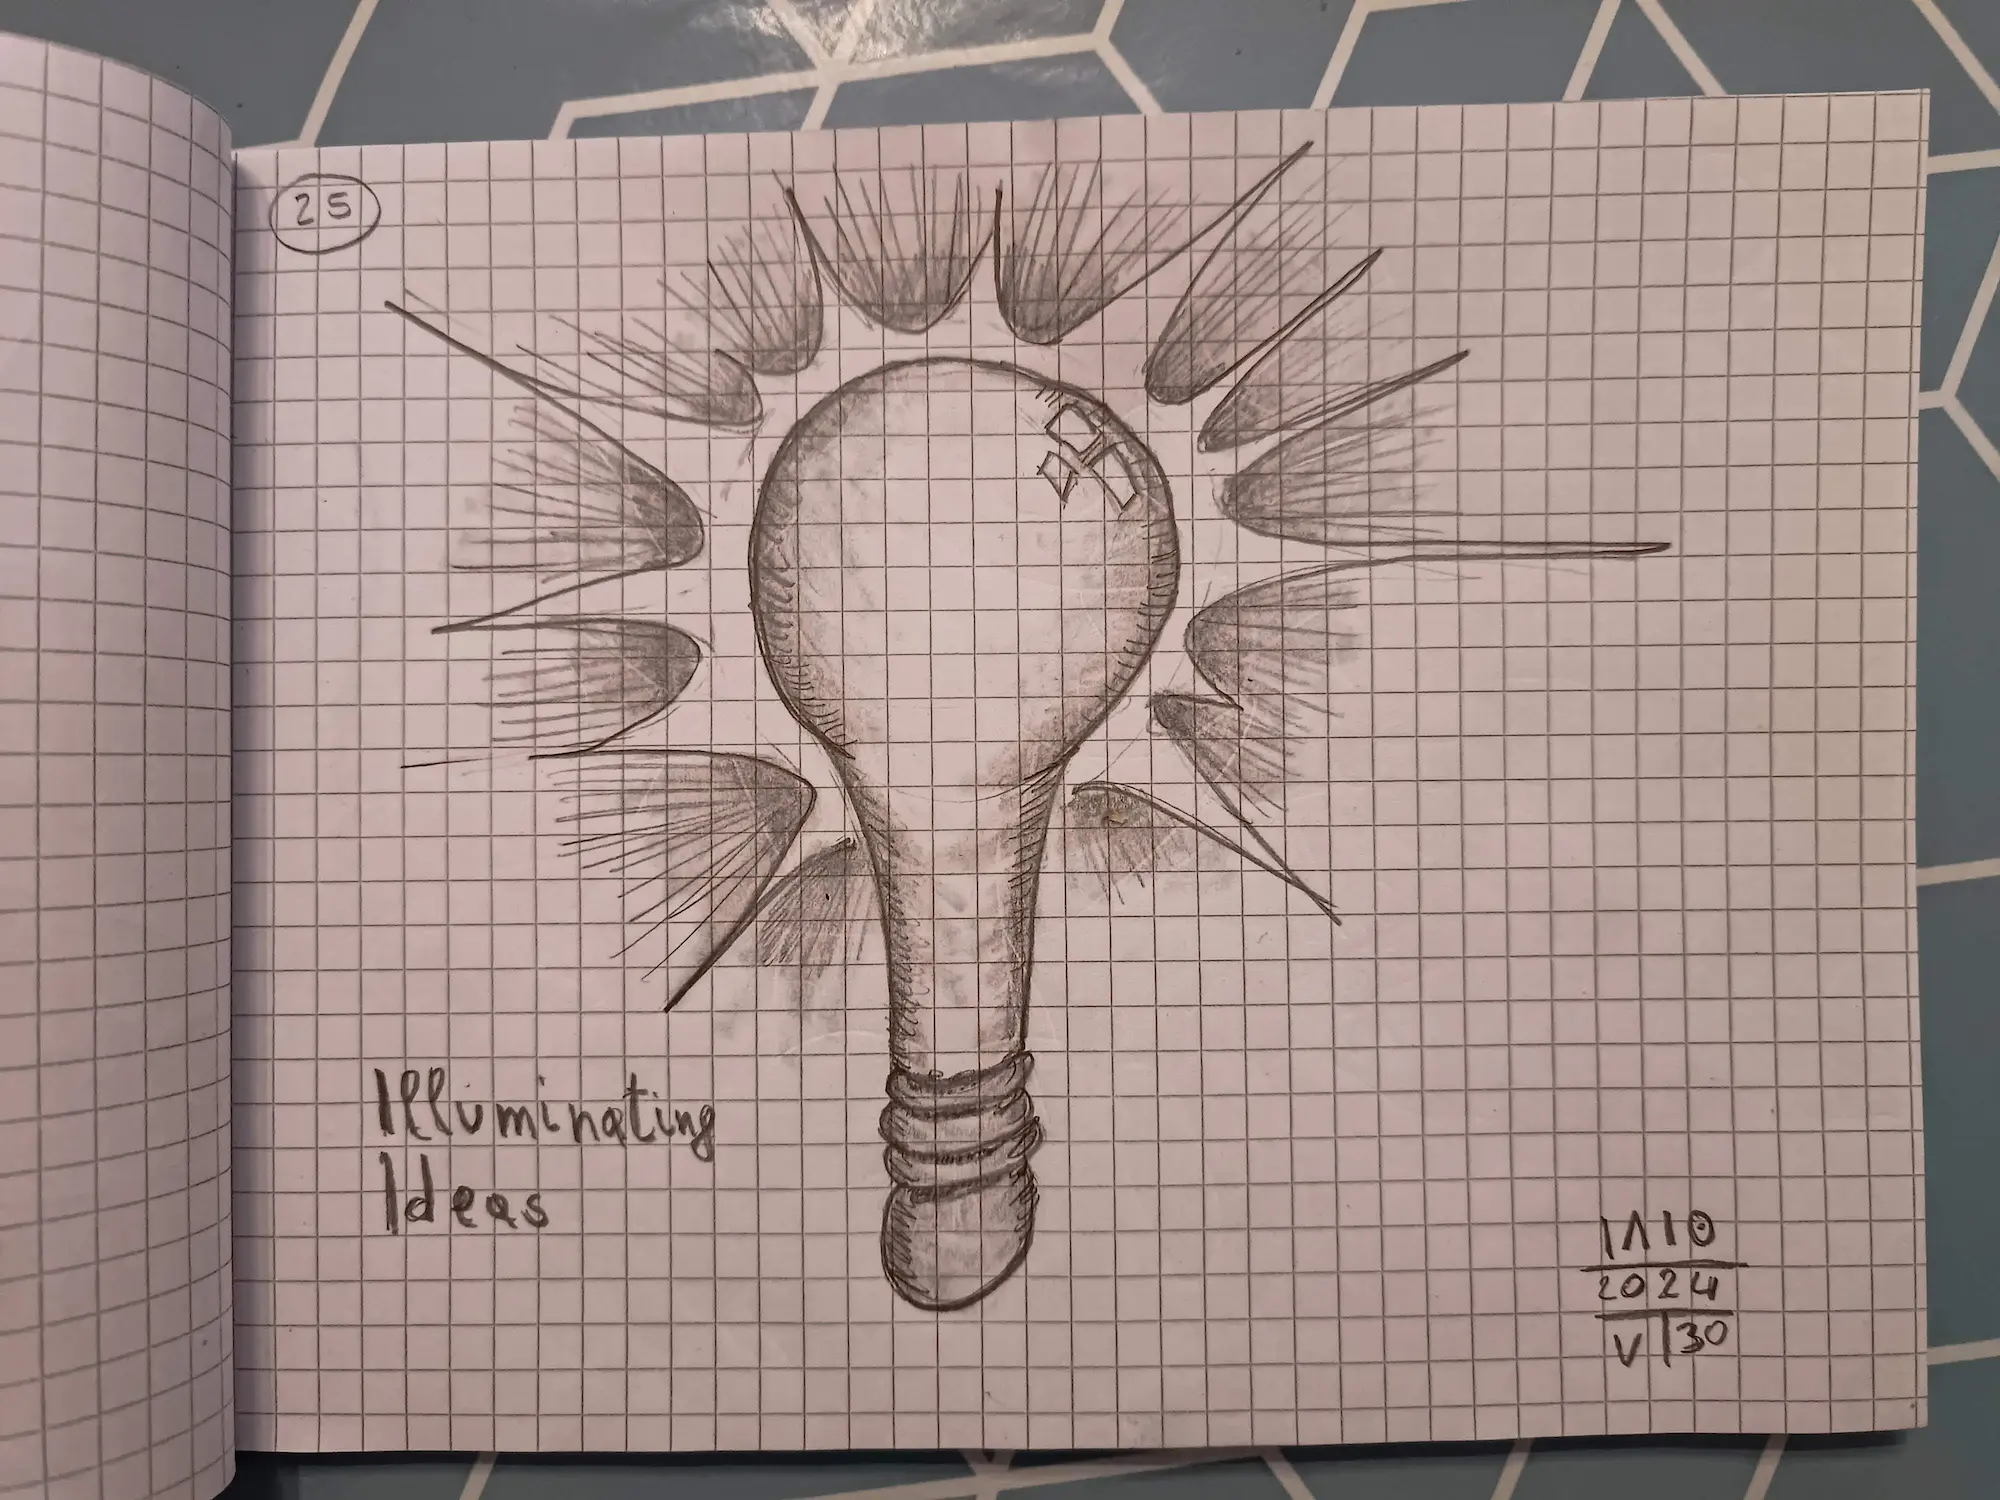 25
Illuminating
Ideas
2024
V 30